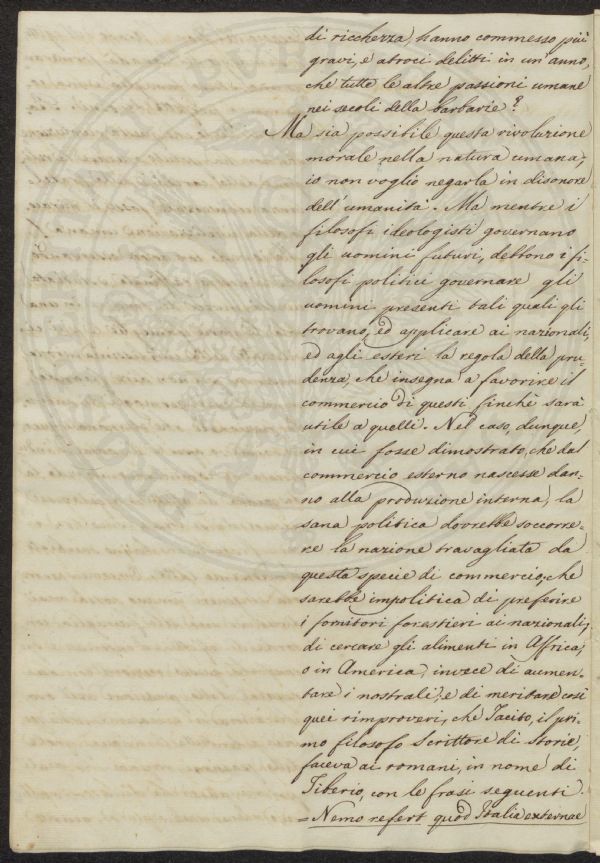 di ricchezza, hanno commesso più
gravi, e atroci delitti in un'anno,
che tutte le altre passioni umane
nei secoli della barbarie?
Ma sia possibile questa rivoluzione
morale nella natura umana,
io non voglio negarla in disonore
dell'umanità. Ma mentre i
filosofi ideologisti governano
gli uomini futuri, debbono i fi-
losofi politici governare gli
uomini presenti tali quali gli
trovano, ed applicare ai nazionali,
ed agli esteri la regola della pru-
denza, che insegna a favorire il
commercio di questi finchè sarà
utile a quelli. Nel caso, dunque,
in cui fosse dimostrato, che dal
commercio esterno nascesse dan-
no alla produzione interna, la
sana politica dovrebbe soccorre-
re la nazione travagliata da
questa specie di commercio, che
sarebbe impolitica di preferire
i fornitori forestieri ai nazionali,
di cercare gli alimenti in Affrica,
o in America, invece di aumen-
tare i nostrali, e di meritare così
quei rimproveri, che Tacito, il pri-
mo filosofo Scrittore di storie,
faceva ai romani, in nome di
Tiberio, con le frasi seguenti.
= Nemo refert quod Italia externae